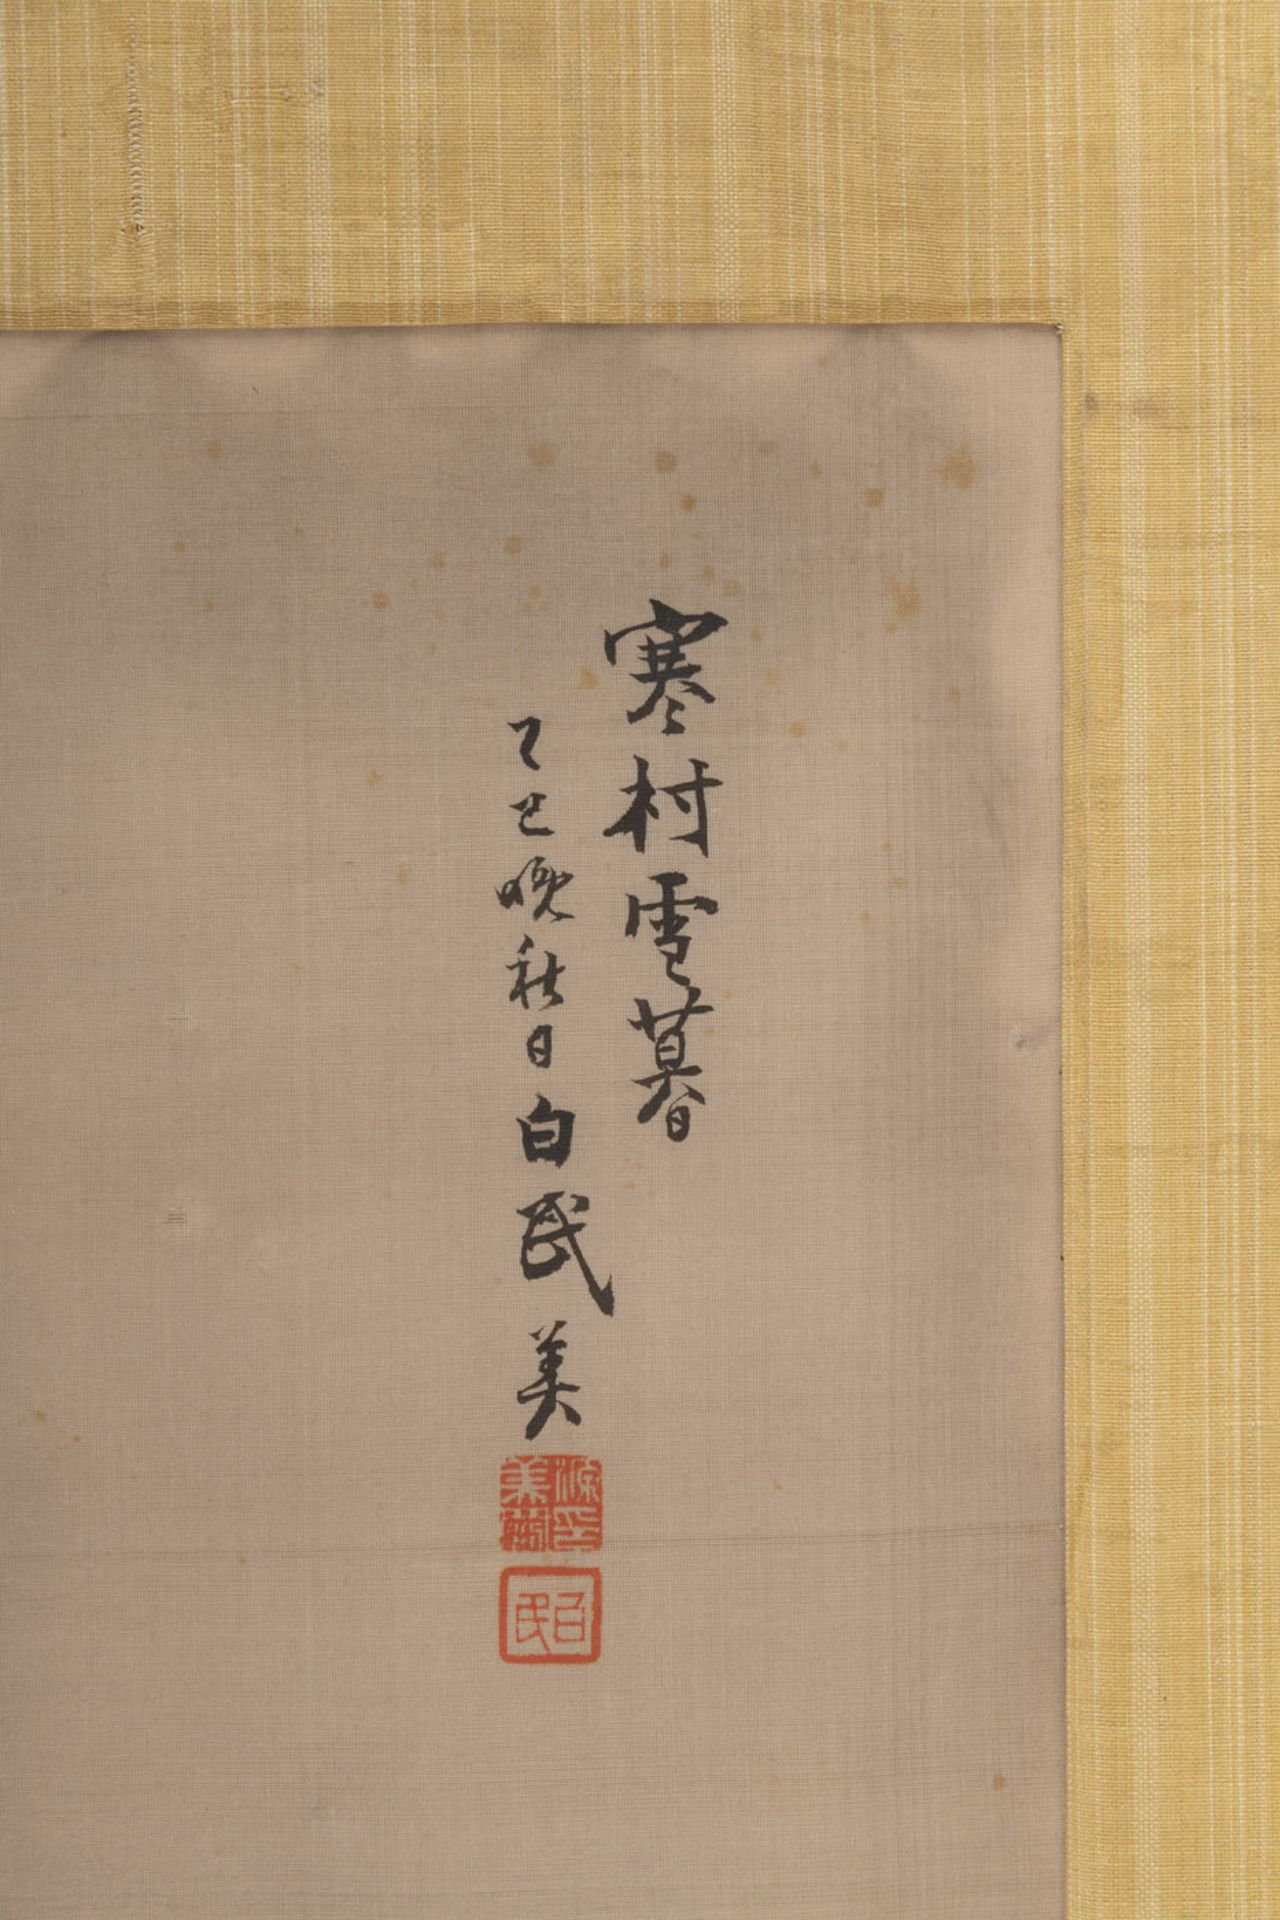 寒村雪暮
乙巳晚秋日白民美
白民